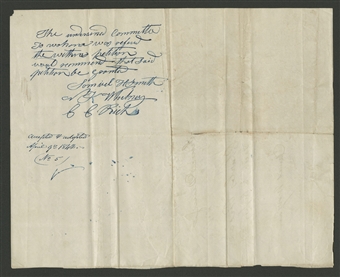 The undersined Committe
to whom was referd
the within petition
would recommend that said
petition be granted
Samuel H Smith
C C Rich
Accepted & adopted
April 9th 1842
(No 5)